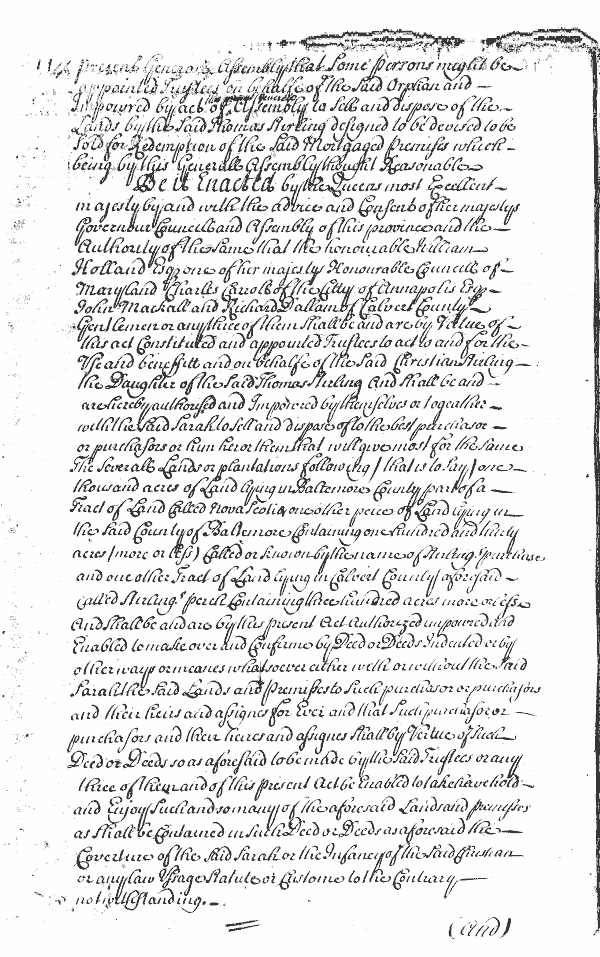 present Generall Assembly that Some Persons might be
appointed Trustees on behalfe of the Said Orphan and
Impowered by act of Assembly to Sele and dispose of the
Lands by the Said Thomas Sterling designed to be devised to be
Sold for Redemption of the Said Mortgaged Premises which
being by this Generall Assembly thought Reasonable
Be it Enacted by the Queens most Excellent
majesty by and with the advice and Consent of her majestys
Governour Councill and Assembly of this province and the
Authority of the Same that the honourable William
Holland Esqr one of her majestys Honourable Councill of
Maryland Charles Carroll of the Citty of Annapolis Esqr
John Mackall and Richard Dallam of Calvert County
Gentlemen or any three of them Shall be and are by Vertue of
this act Constituted and appointed Trustees to act to and for the
Use and benefitt and on behalfe of the Said Christian Stirling
the Daughter of the Said Thomas Stirling And Shall be and
are hereby authorised and Impowered by themselves or togeather
with the Said Sarah to Sell and dispose of to the best purchasor
or purchasors or him her or them that will give most for the Same
The Severall Lands or plantations following (that is to Say) one
thousand acres of Land lying in Baltemore County part of a
Tract of Land Called Nova Scotia one other peice of Land lying in
the Said County of Baltemore Containing one hundred and thirty
acres (more or less) Called or known by the name of Stirlings purchase
and one other Tract of Land lying in Calvert County aforesaid
Called Stirlings perch Containing three hundred acres more or less
And Shall be and are by this present Act Authorized impowred and
Enabled to make over and Confirme by Deed or Deeds Indented or by
other ways or meanes whatsoever either with or without the Said
Sarah the Said Lands and premisses to Such purchasor or purchasors
and their heirs and assignes for Ever and that Such purchasor or
purchasors and their heires and assignes Shall by Vertue of Such
Deed or Deeds so as aforesaid to be made by the Said Trustees or any
three of them and of this present Act be Enabled to take have hold
and Enjoy Such and so many of the aforesaid Lands and premisses
as Shall be Contained in Such Deed or Deeds as aforesaid the
Coverture of the Said Sarah or the Infancy of the Said Christian
or any Law Usage Statute or Custome to the Contrary
notwithstanding.
(And)